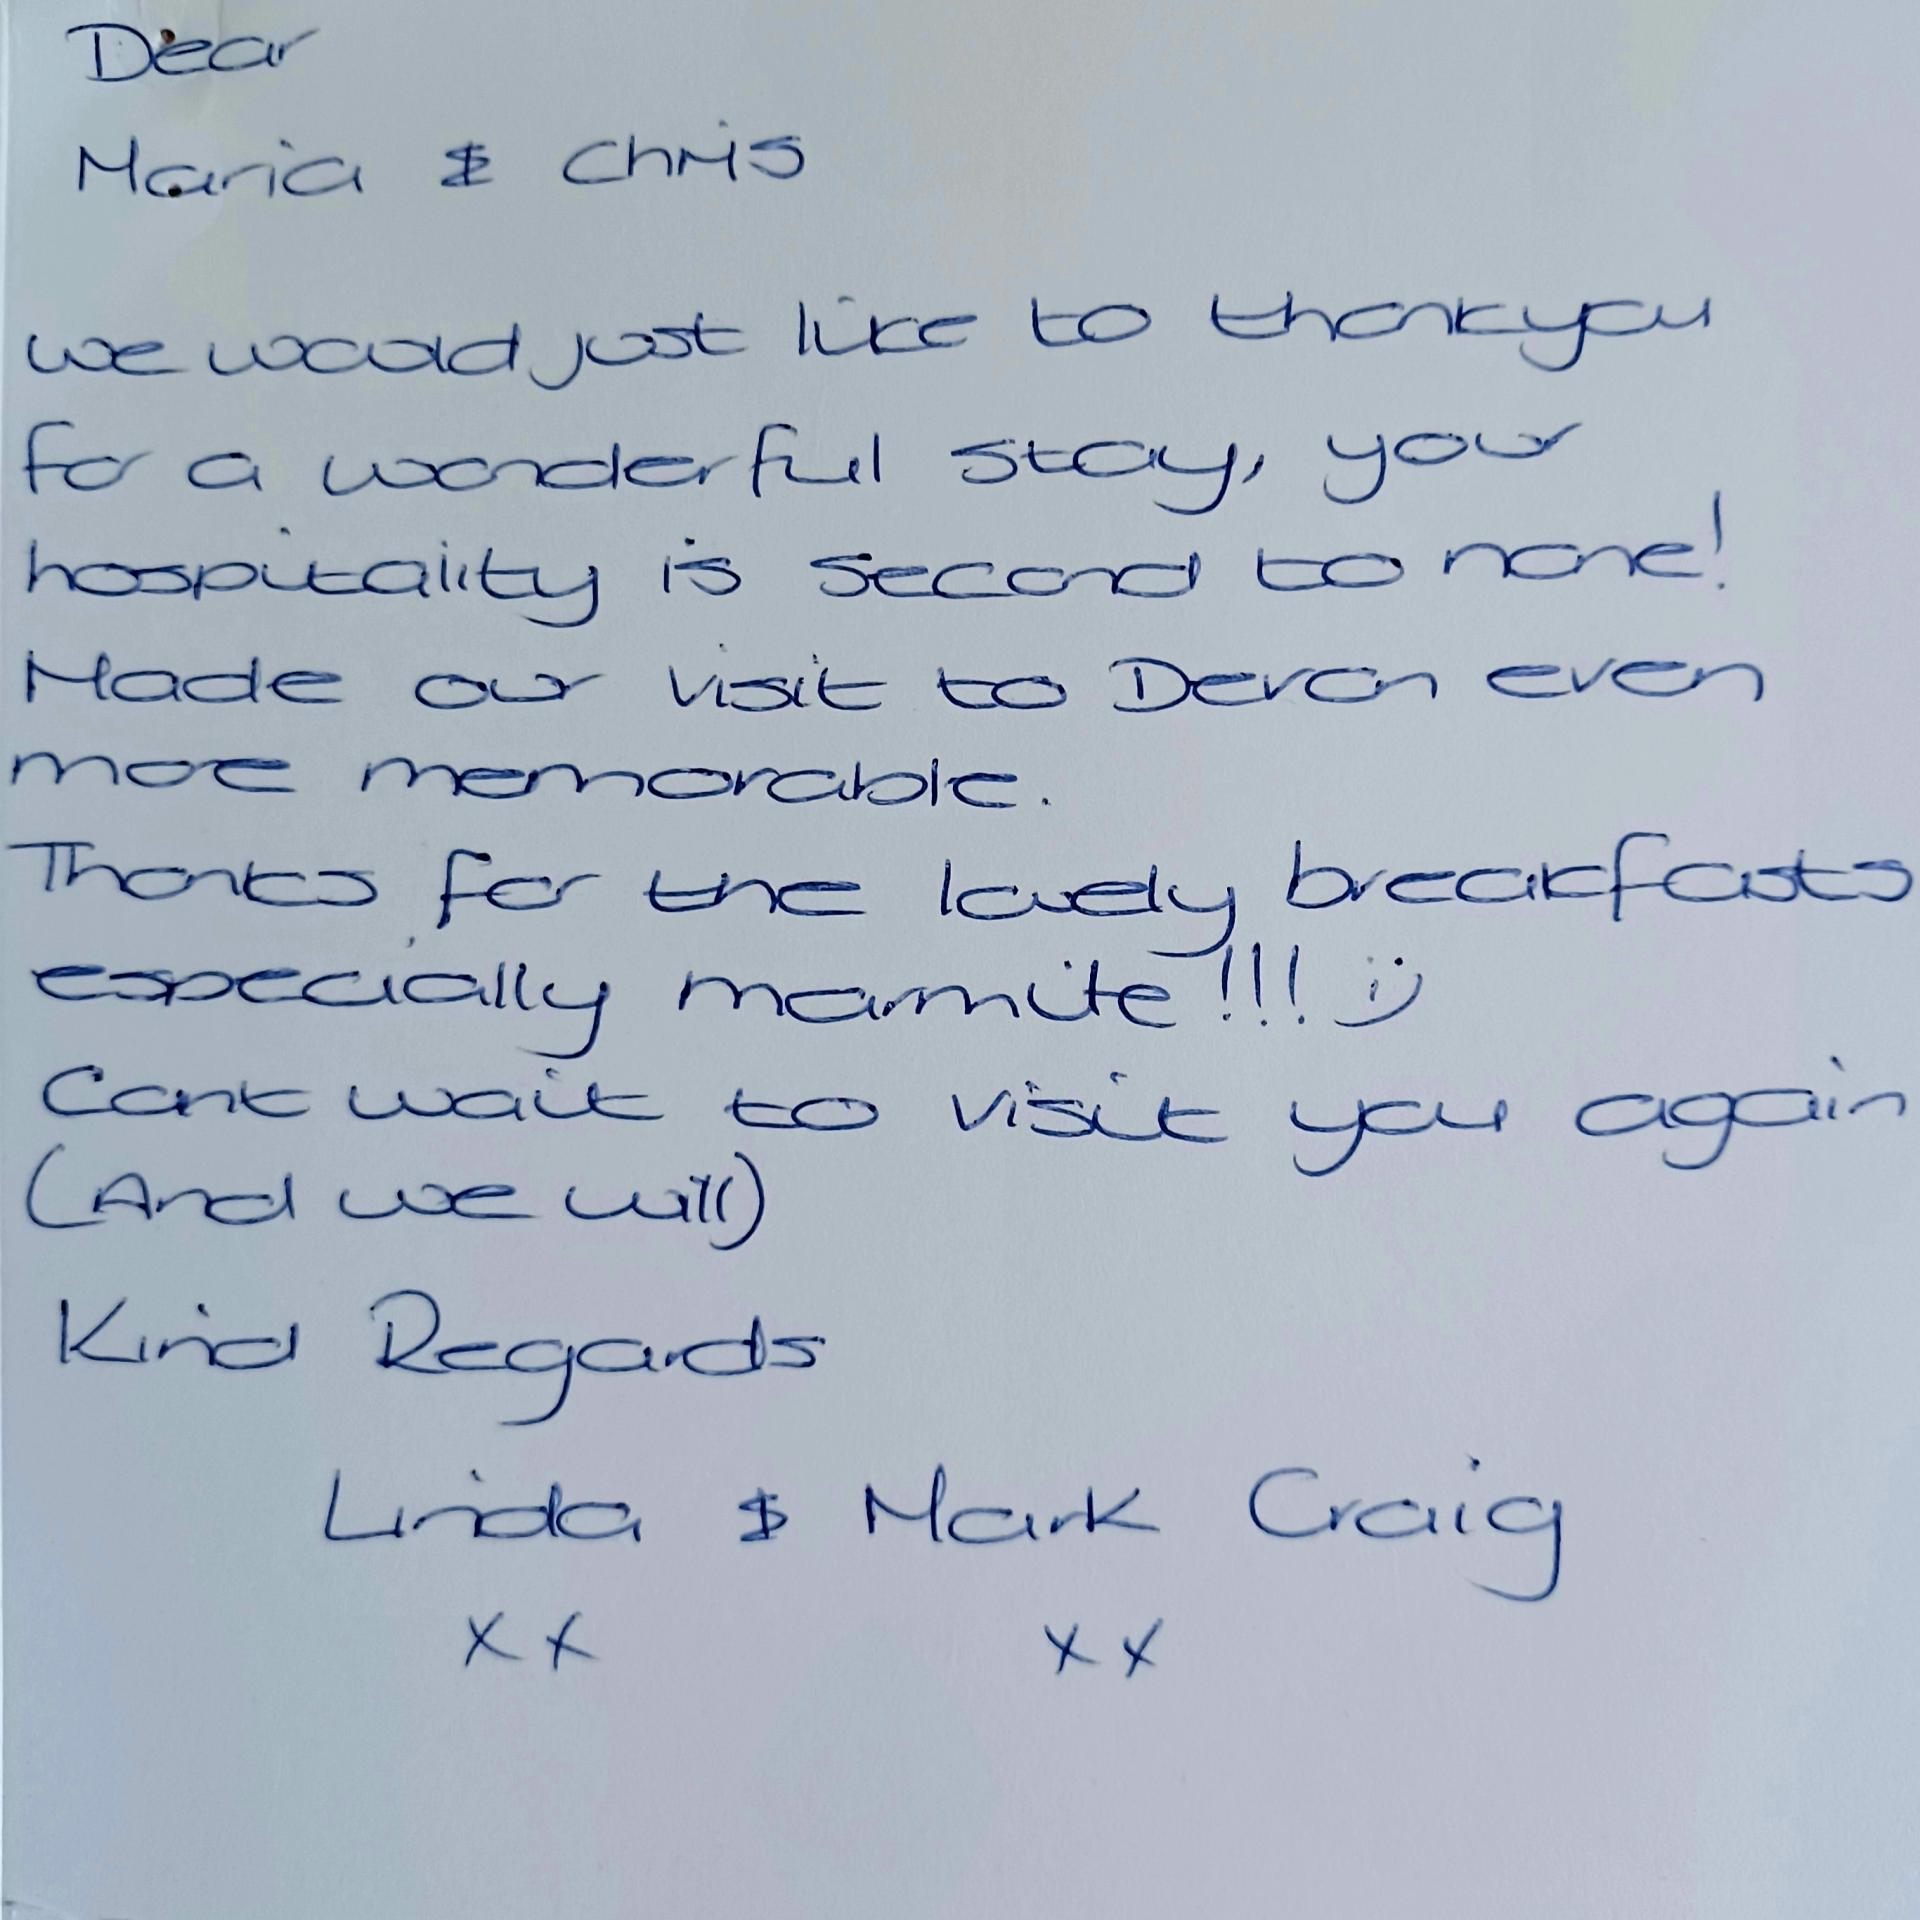 Dear
Maria & Chris
we would just like to thankyou
for a wonderful stay, your
hospitality is second to none!
Made our visit to Devon even
more memorable.
Thanks for the lovely breakfasts
especially marmite!!! :)
Cant wait to visit you again
(And we will)
Kind Regards
Linda & Mark Craig
x x x x